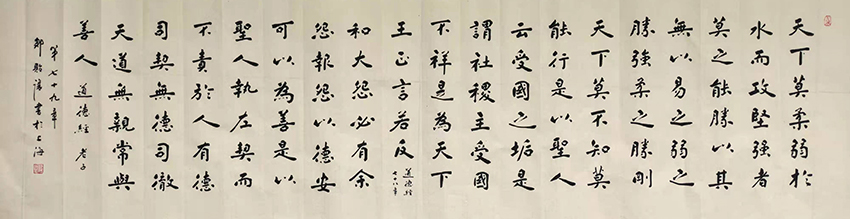 天下莫柔弱於
水而攻堅強者
莫之能勝以其
無以易之弱之
勝強柔之勝剛
天下莫不知莫
能行是以聖人
云受國之垢是
謂社稷主受國
不祥是為天下
王正言若反
道德經
和大怨必有余
怨報怨以德安
可以為善是以
聖人執左契而
不責於人有德
司契無德司徹
天道無親常與
善人 道德經 老子
第七十九章
書於上海